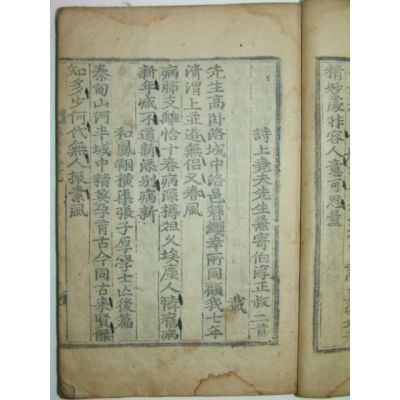 精妙處非容人意可思量
詩上堯夫先生兼寄伯淳正叔 二首
載
先生高臥洛城中洛邑簪纓幸所同顧我七年
清渭上並遊無侶又春風
病肺支離恰十春病深樽俎久埃塵人憐舊病
新年減不道新添別病新
和鳳翔橫渠張子厚學士亡後篇
秦甸山河半域中精英孕育古今同古來賢傑
知多少何代無人振素風